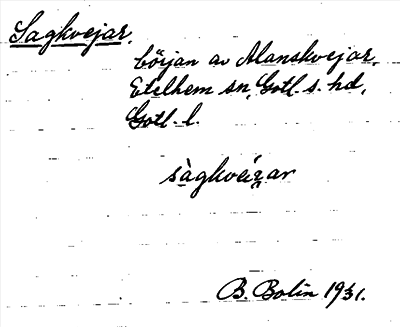 Sagkvejar.
början av Alanskvejar,
Etelhem sn, Gotl. s. hd,
Gotl. l.
sàgkvéi̯ar
B. Bolin 1931.